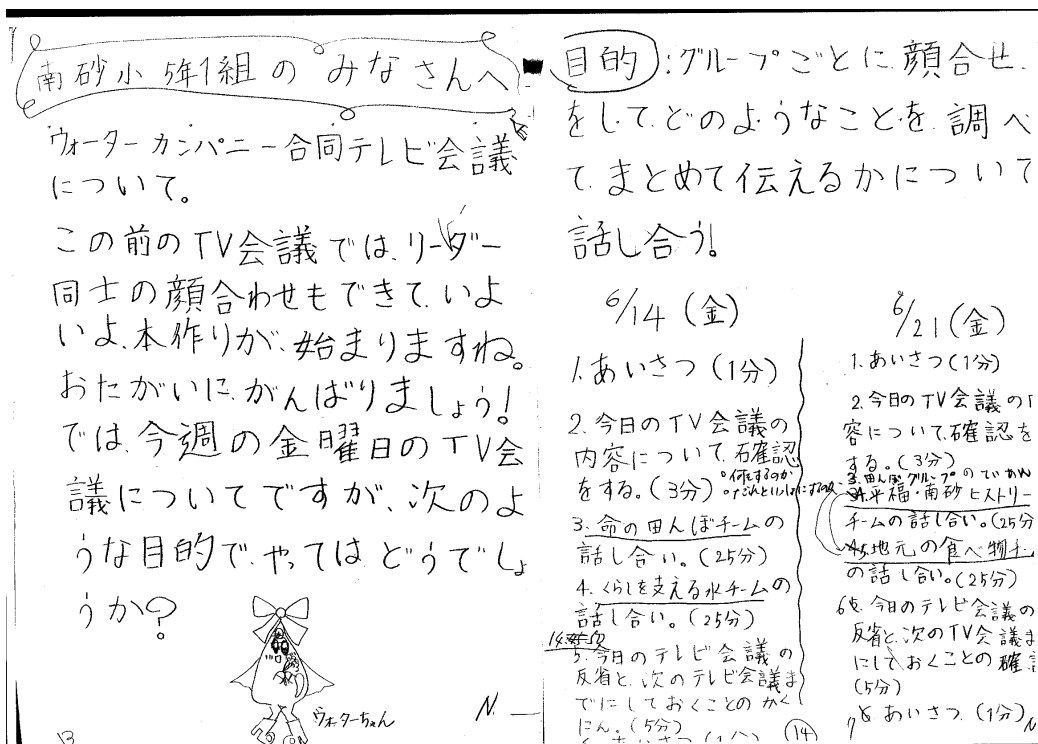 南砂小5年1組のみなさんへ
ウォーターカンパニー合同テレビ会議
について。
この前のTV会議では、リーダー
同士の顔合わせもできて、いよ
いよ、本作りが、始まりますね。
おたがいに、がんばりましょう!
では、今週の金曜日のTV会
議についてですが、次のよ
うな目的で、やってはどうでしょ
うか?
ウォーターちゃん
N.
13
目的:グループごとに、顔合せ、
をして、どのようなことを、調べ
て、まとめて伝えるかについて
話し合う!
6/14(金)
1.あいさつ(1分)
2.今日のTV会議の
内容について、確認
をする。(3分)
・何をするのか
3.命の田んぼチームの
話し合い。(25分)
4.くらしを支える水チームの
話し合い。(25分)
5.今日のテレビ会議の
反省と、次のテレビ会議ま
でにしておくことのかく
にん。(5分)
(14)
6/21(金)
1.あいさつ(1分)
2.今日のTV会議の
容について、確認を
する。(3分)
3.田んぼグループの
平福・南砂ヒストリー
チームの話し合い。(25分
地元の食べ物チ
の話し合い。(25分)
6.今日のテレビ会議の
反省と、次のTV会議ま
にしておくことの確
(5分)
7 あいさつ。(1分)